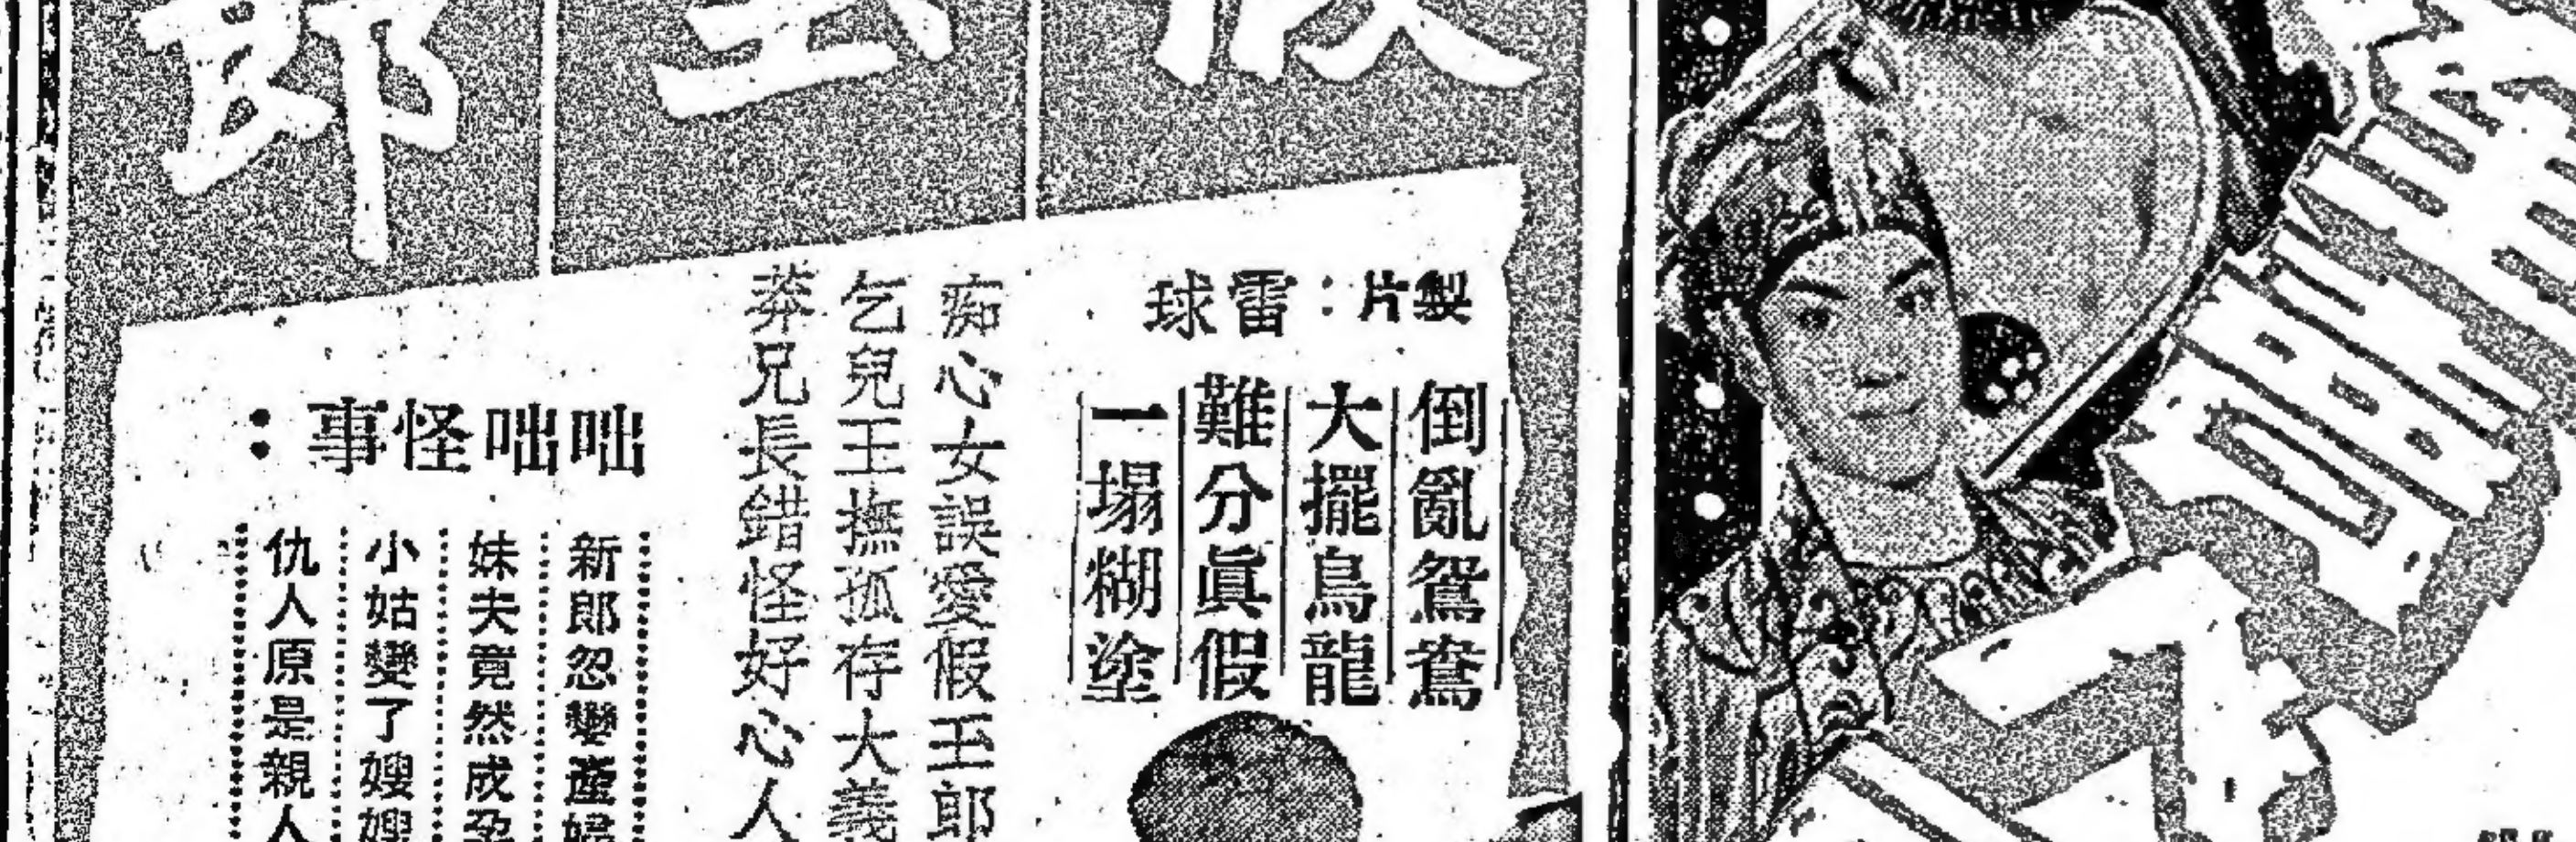 假玉郎
製片：雷球
倒亂鴛鴦
大擺烏龍
難分眞假
一塌糊塗
痴心女誤愛假玉郎
乞兒王撫孤存大義
莽兄長錯怪好心人
咄咄怪事：
新郎忽變產婦
妹夫竟然成孕
小姑變了嫂嫂
仇人原是親人